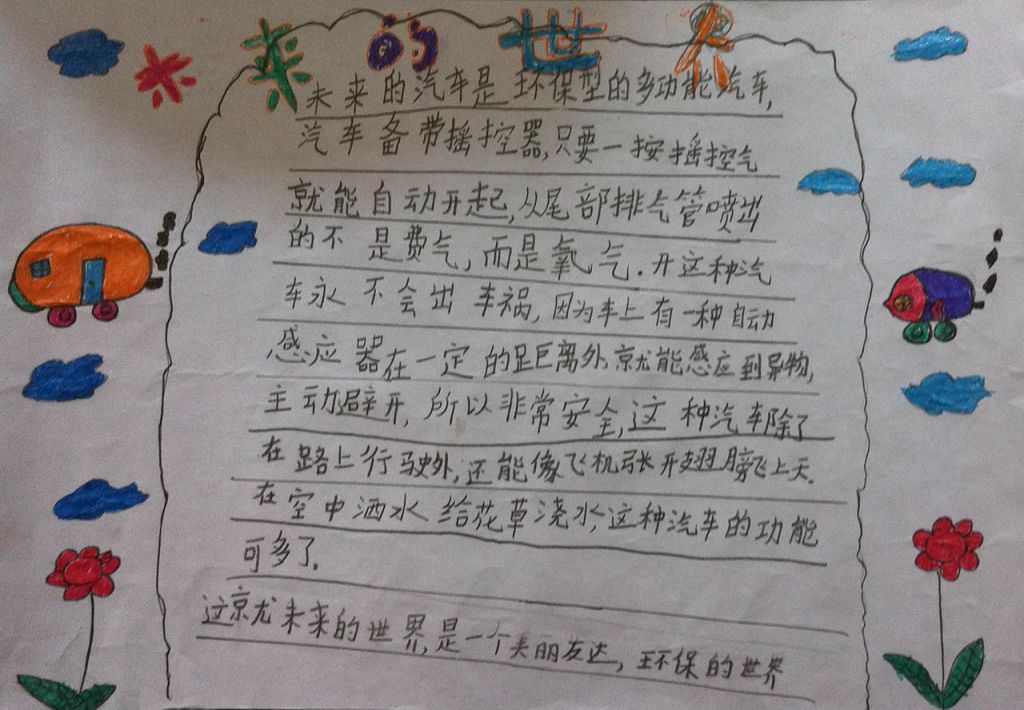 未来的世界
未来的汽车是环保型的多功能汽车,
汽车备带摇控器,只要一按摇控气
就能自动开起,从尾部排气管喷出
的不是费气,而是氧气.开这种汽
车永不会出车祸,因为车上有一种自动
感应器在一定的距离外就能感应到异物,
主动避开,所以非常安全,这种汽车除了
在路上行驶外,还能像飞机张开翅膀飞上天.
在空中洒水给花草浇水,这种汽车的功能
可多了.
这就尤未来的世界,是一个美丽友达,环保的世界